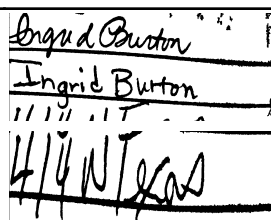 Ingrid Burton
Ingrid Burton
414 N Texas